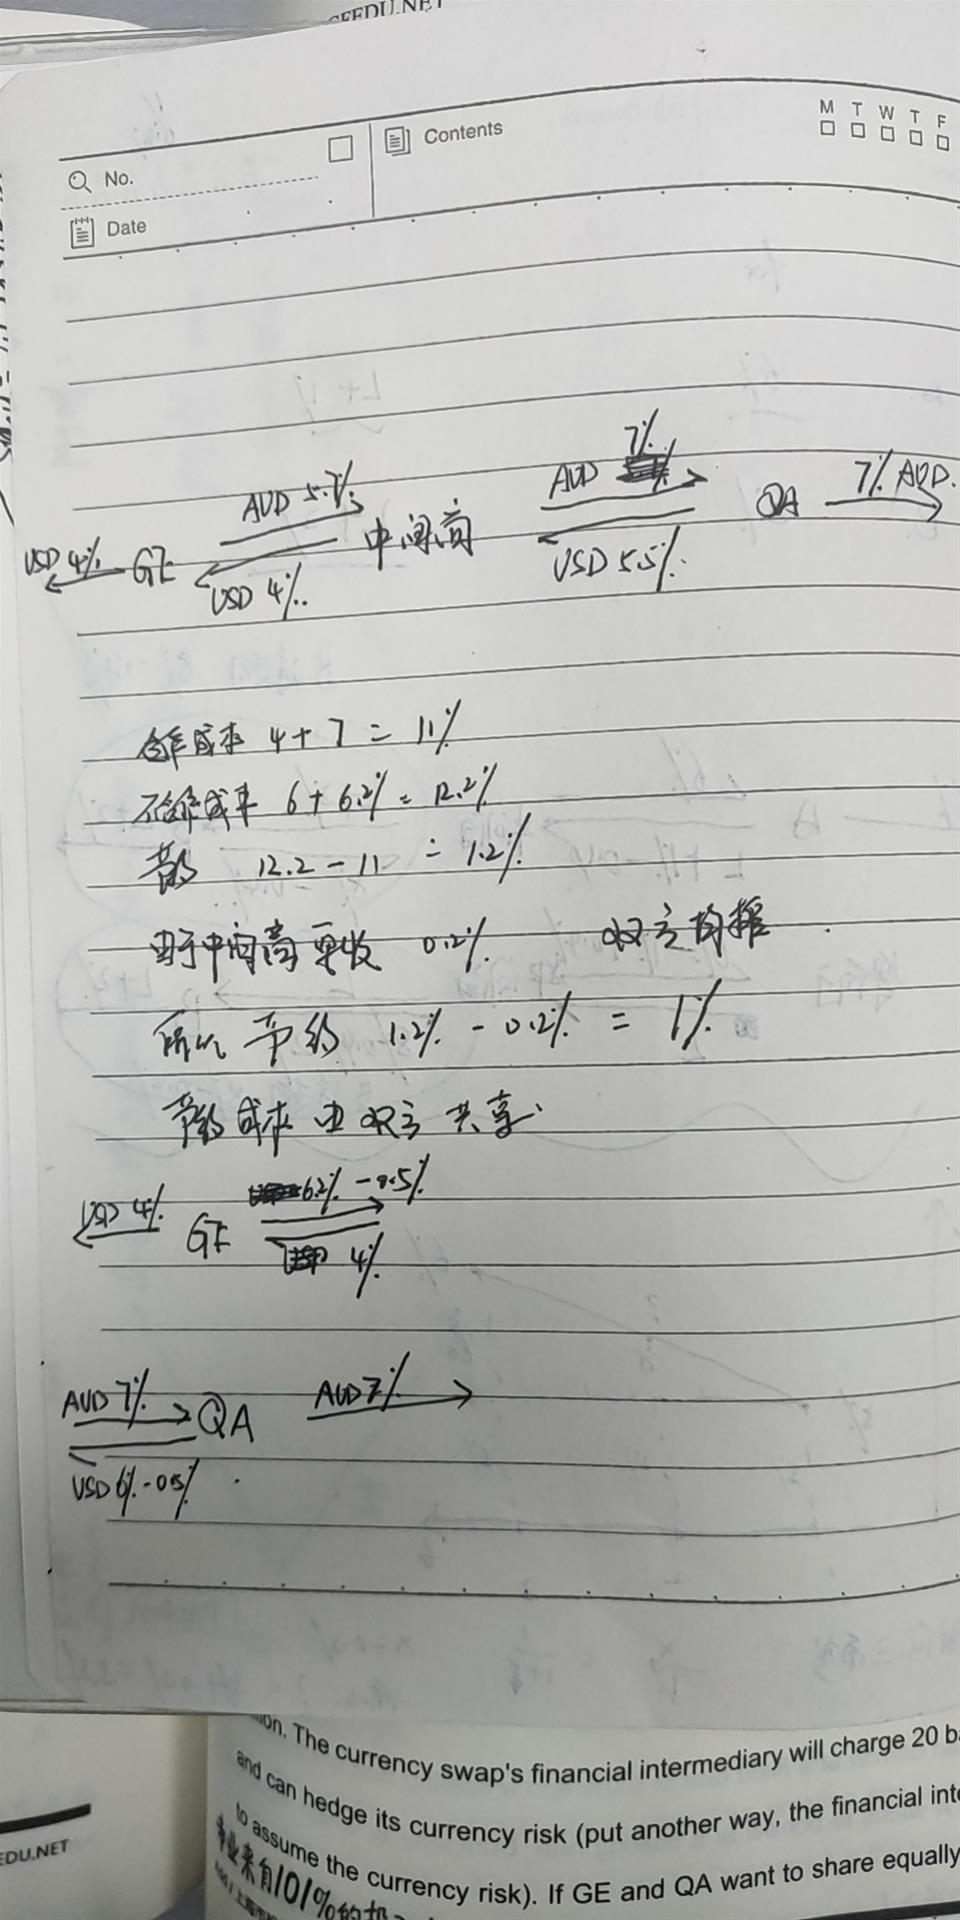 GFEDU.NET
No.
Contents
M T W T F
Date
AUD 5.7%
AUD 7%
7% AUD.
USD 4%
GE
中间商
QA
USD 4%.
USD 5.5%.
合作成本 4+7=11%
不合作成本 6+6.2%=12.2%
节约 12.2-11=1.2%
由于中间商要收 0.2%. 双方均摊.
所以节约 1.2%-0.2%=1%.
节约成本由双方共享.
USD 4% GE 6.2%-0.5%
4%
AUD 7% QA AUD 7%
USD 6%-0.5%
. The currency swap's financial intermediary will charge 20
and can hedge its currency risk (put another way, the financial
to assume the currency risk). If GE and QA want to share equally
业来有101%的
EDU.NET